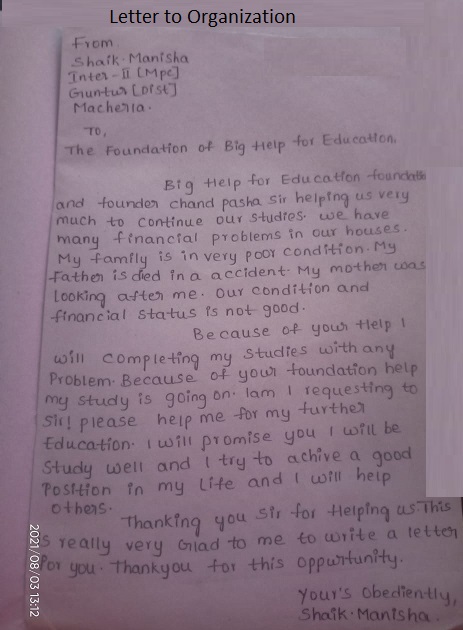 Letter to Organization
From
Shaik. Manisha
Inter - II [Mpc]
Guntur [Dist]
Macherla.
To,
The Foundation of Big Help for Education,
Big Help for Education foundath
and founder chand pasha sir helping us very
much to continue our studies. we have
many financial problems in our houses.
My family is in very poor condition. My
father is died in a accident. My mother was
looking after me. Our condition and
financial status is not good.
Because of your Help I
will completing my studies with any
Problem. Because of your foundation help
my study is going on. Iam I requesting to
sir! please help me for my further
Education. I will promise you I will be
study well and I try to achive a good
Position in my Life and I will help
others.
Thanking you sir for Helping us. This
is really very Glad to me to write a letter
for you. Thankyou for this oppurtunity.
Your's Obediently,
Shaik. Manisha.
2021/08/03 13:12